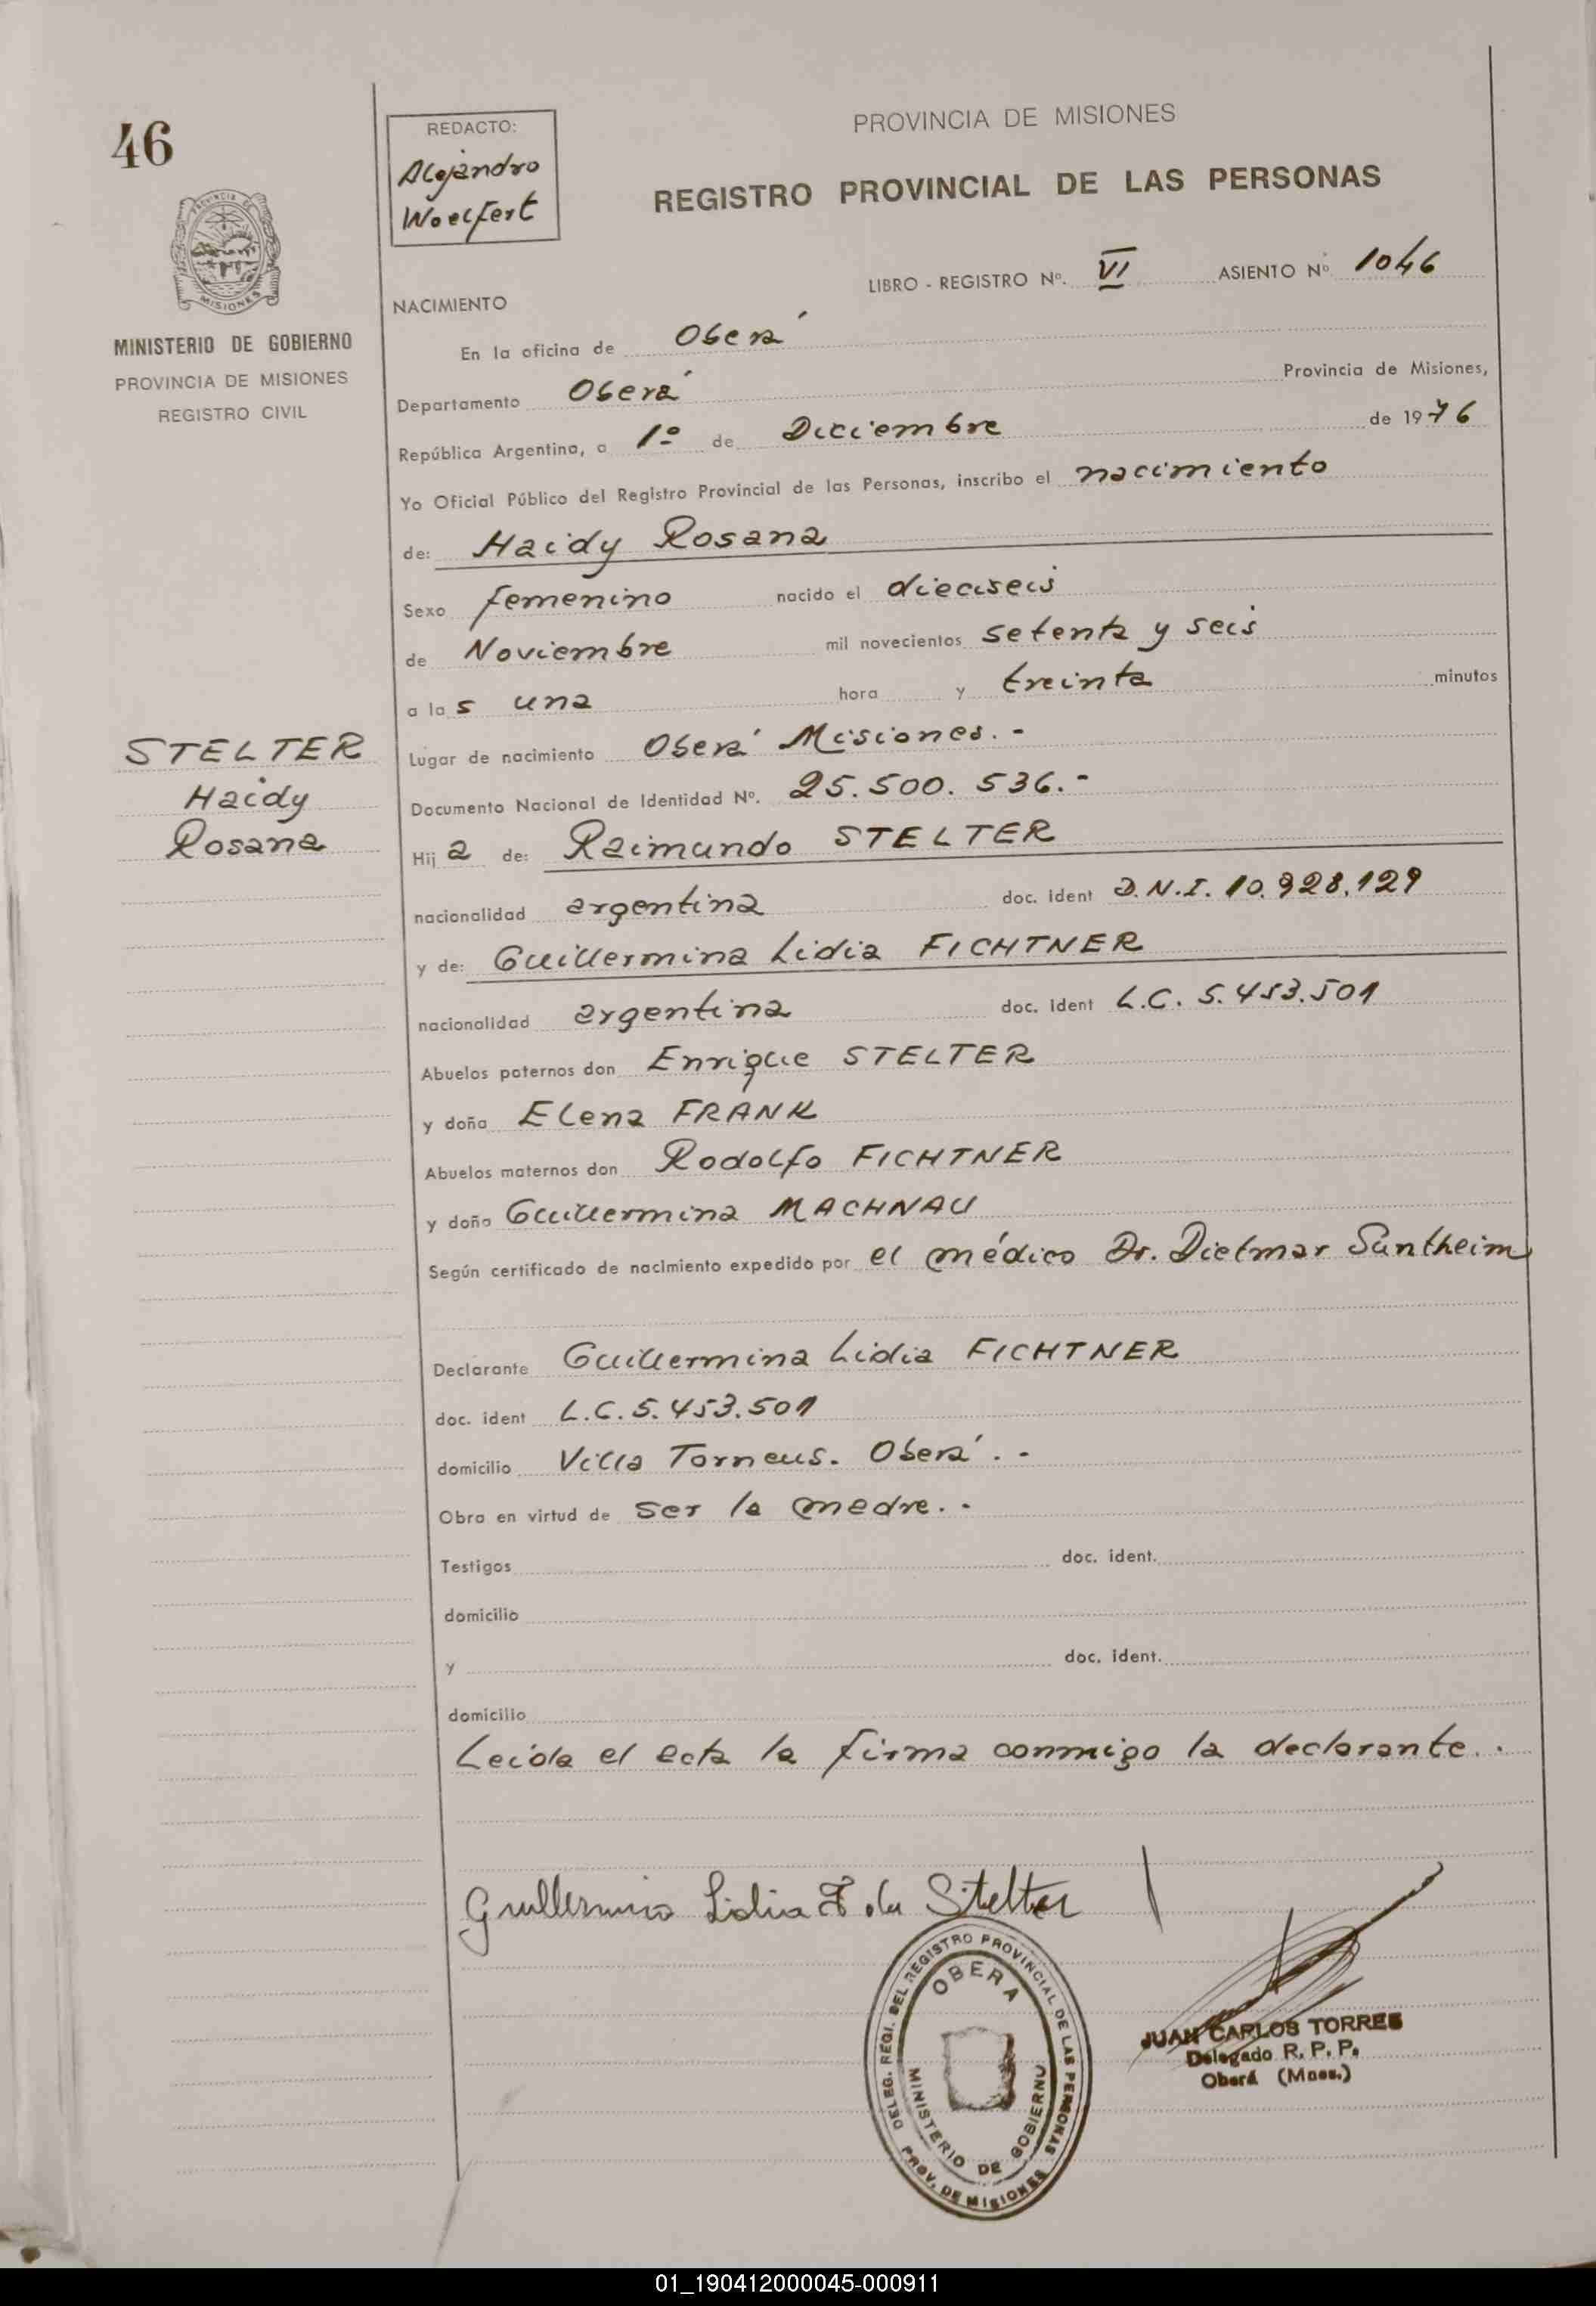 46
REDACTO:
Alejandro
Woelfert
PROVINCIA DE MISIONES
REGISTRO PROVINCIAL DE LAS PERSONAS
LIBRO - REGISTRO Nº. VI ASIENTO Nº 1046
MINISTERIO DE GOBIERNO
PROVINCIA DE MISIONES
REGISTRO CIVIL
NACIMIENTO
En la oficina de Oberá
Departamento Oberá Provincia de Misiones,
República Argentina, a 1º de Diciembre de 1976
Yo Oficial Público del Registro Provincial de las Personas, inscribo el nacimiento
de: Haidy Rosana
Sexo femenino nacido el dieciseis
de Noviembre mil novecientos setenta y seis
a las una hora y treinta minutos
STELTER
Haidy
Rosana
Lugar de nacimiento Oberá Misiones.-
Documento Nacional de Identidad Nº. 25.500.536.-
Hija de: Raimundo STELTER
nacionalidad argentina doc. ident D.N.I. 10.928.129
y de: Guillermina Lidia FICHTNER
nacionalidad argentina doc. ident L.C. 5.453.501
Abuelos paternos don Enrique STELTER
y doña Elena FRANK
Abuelos maternos don Rodolfo FICHTNER
y doña Guillermina MACHNAU
Según certificado de nacimiento expedido por el médico Dr. Dietmar Suntheim
Declarante Guillermina Lidia FICHTNER
doc. ident L.C. 5.453.501
domicilio Villa Torneus. Oberá.-
Obra en virtud de ser la madre.-
Testigos doc. ident.
domicilio
y doc. ident.
domicilio
Leida el acta la firma conmigo la declarante.-
Guillermina Lidia F. de Stelter
DELEG. REGI. DEL REGISTRO PROVINCIAL DE LAS PERSONAS
OBERA
MINISTERIO DE GOBIERNO
PROV. DE MISIONES
JUAN CARLOS TORRES
Delegado R. P. P.
Oberá (Mnes.)
01_190412000045-000911